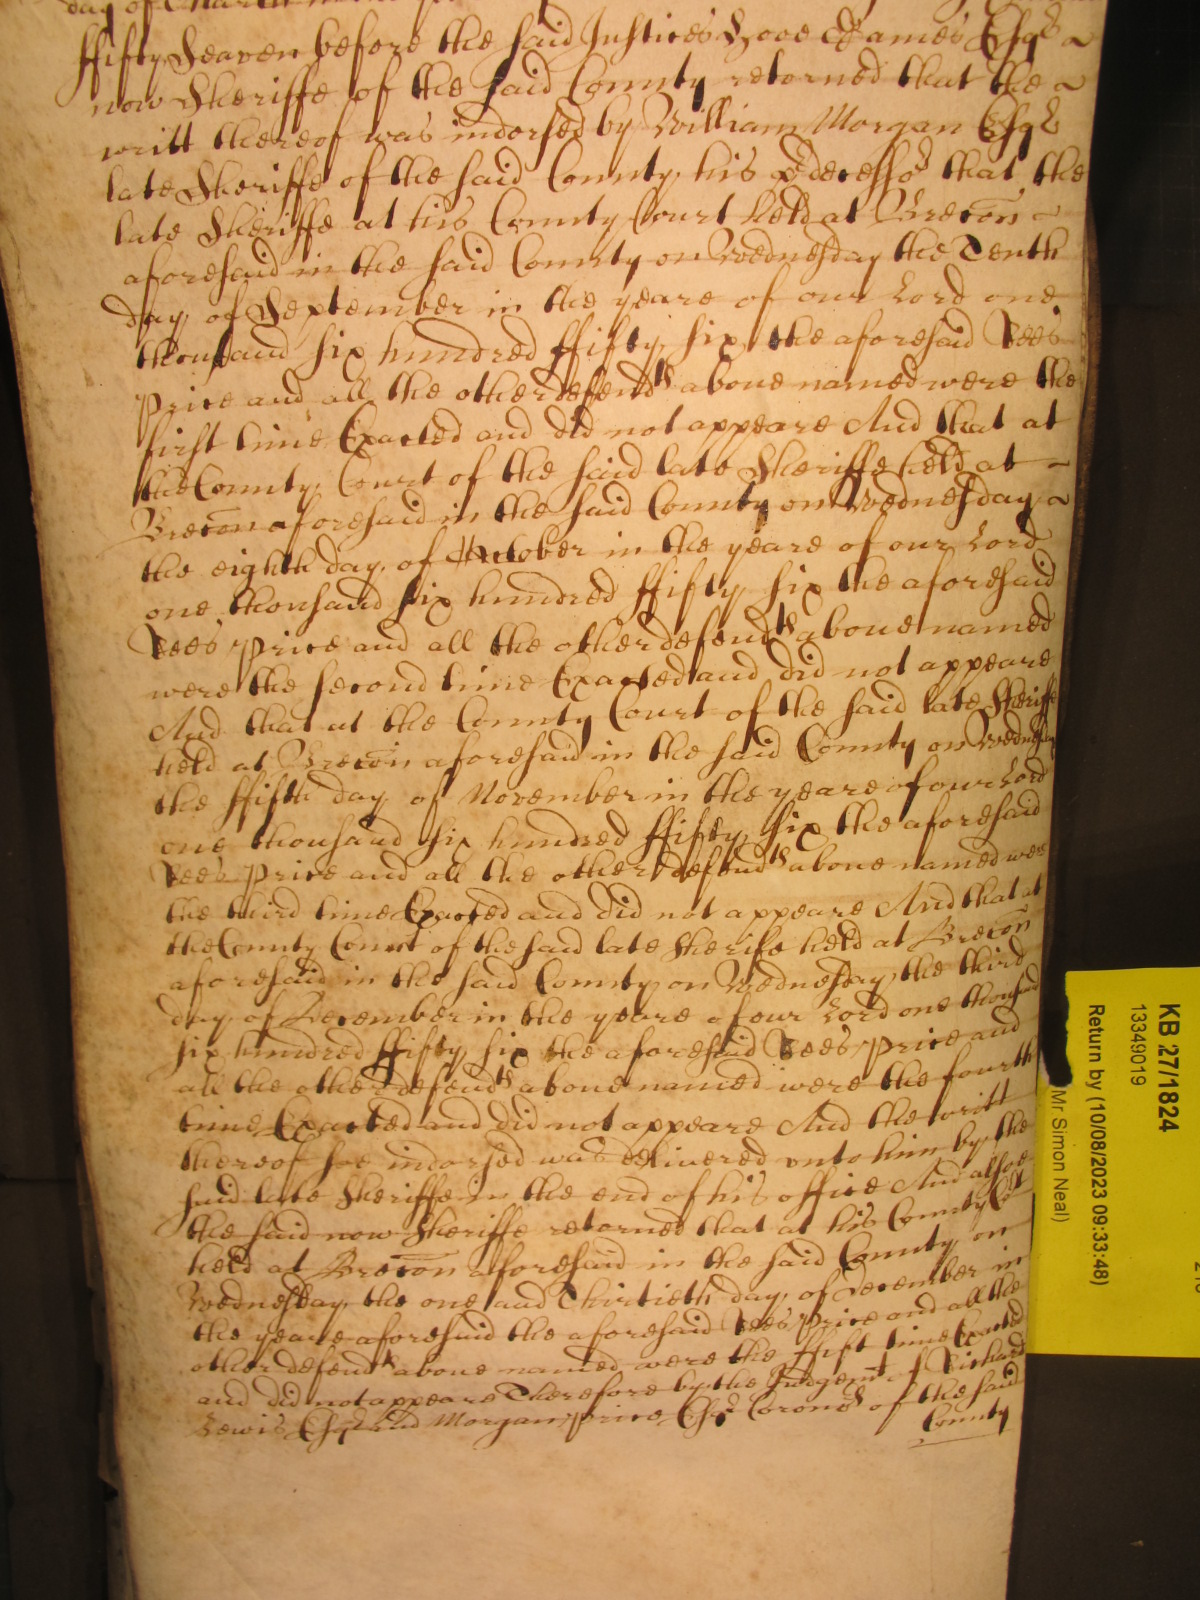 day of March
ffifty Seaven before the said Justices Howe Games Esqr
now Sheriffe of the said County retorned that the
writt thereof was indorsed by William Morgan Esqr
late Sheriffe of the said County his Predecessor that the
late Sheriffe at his County Court held at Brecon
aforesaid in the said County on Wednesday the Tenth
day of September in the yeare of our Lord one
thousand six hundred ffifty six the aforesaid Rees
Price and all the other defendts above named were the
first time Exacted and did not appeare And that at
the County Court of the said late Sheriffe held at
Brecon aforesaid in the said County on Wednesday
the eighth day of October in the yeare of our Lord
one thousand six hundred ffifty six the aforesaid
Rees Price and all the other defendts above named
were the second time Exacted and did not appeare
And that at the County Court of the said late Sheriffe
held at Brecon aforesaid in the said County on Wednesday
the ffifth day of November in the yeare of our Lord
one thousand six hundred ffifty six the aforesaid
Rees Price and all the other defendts above named were
the third time Exacted and did not appeare And that at
the County Court of the said late Sherife held at Brecon
aforesaid in the said County on Wednesday the third
day of December in the yeare of our Lord one thousand
six hundred ffifty six the aforesaid Rees Price and
all the other defendts above named were the fourth
time Exacted and did not appeare And the writt
thereof soe indorsed was delivered unto him by the
said late Sheriffe in the end of his office And alsoe
the said now Sheriffe retorned that at his County Cort
held at Brecon aforesaid in the said County on
Wednesday the one and Thirtieth day of December in
the yeare aforesaid the aforesaid Rees Price and all the
other defendts above named were the ffift time Exacted
and did not appeare Therefore by the Judgemt of Richard
Lewis Esqr and Morgan Price Esqr Coroners of the said
County
KB 27/1824
13349019
Return by (10/08/2023 09:33:48)
Mr Simon Neal)